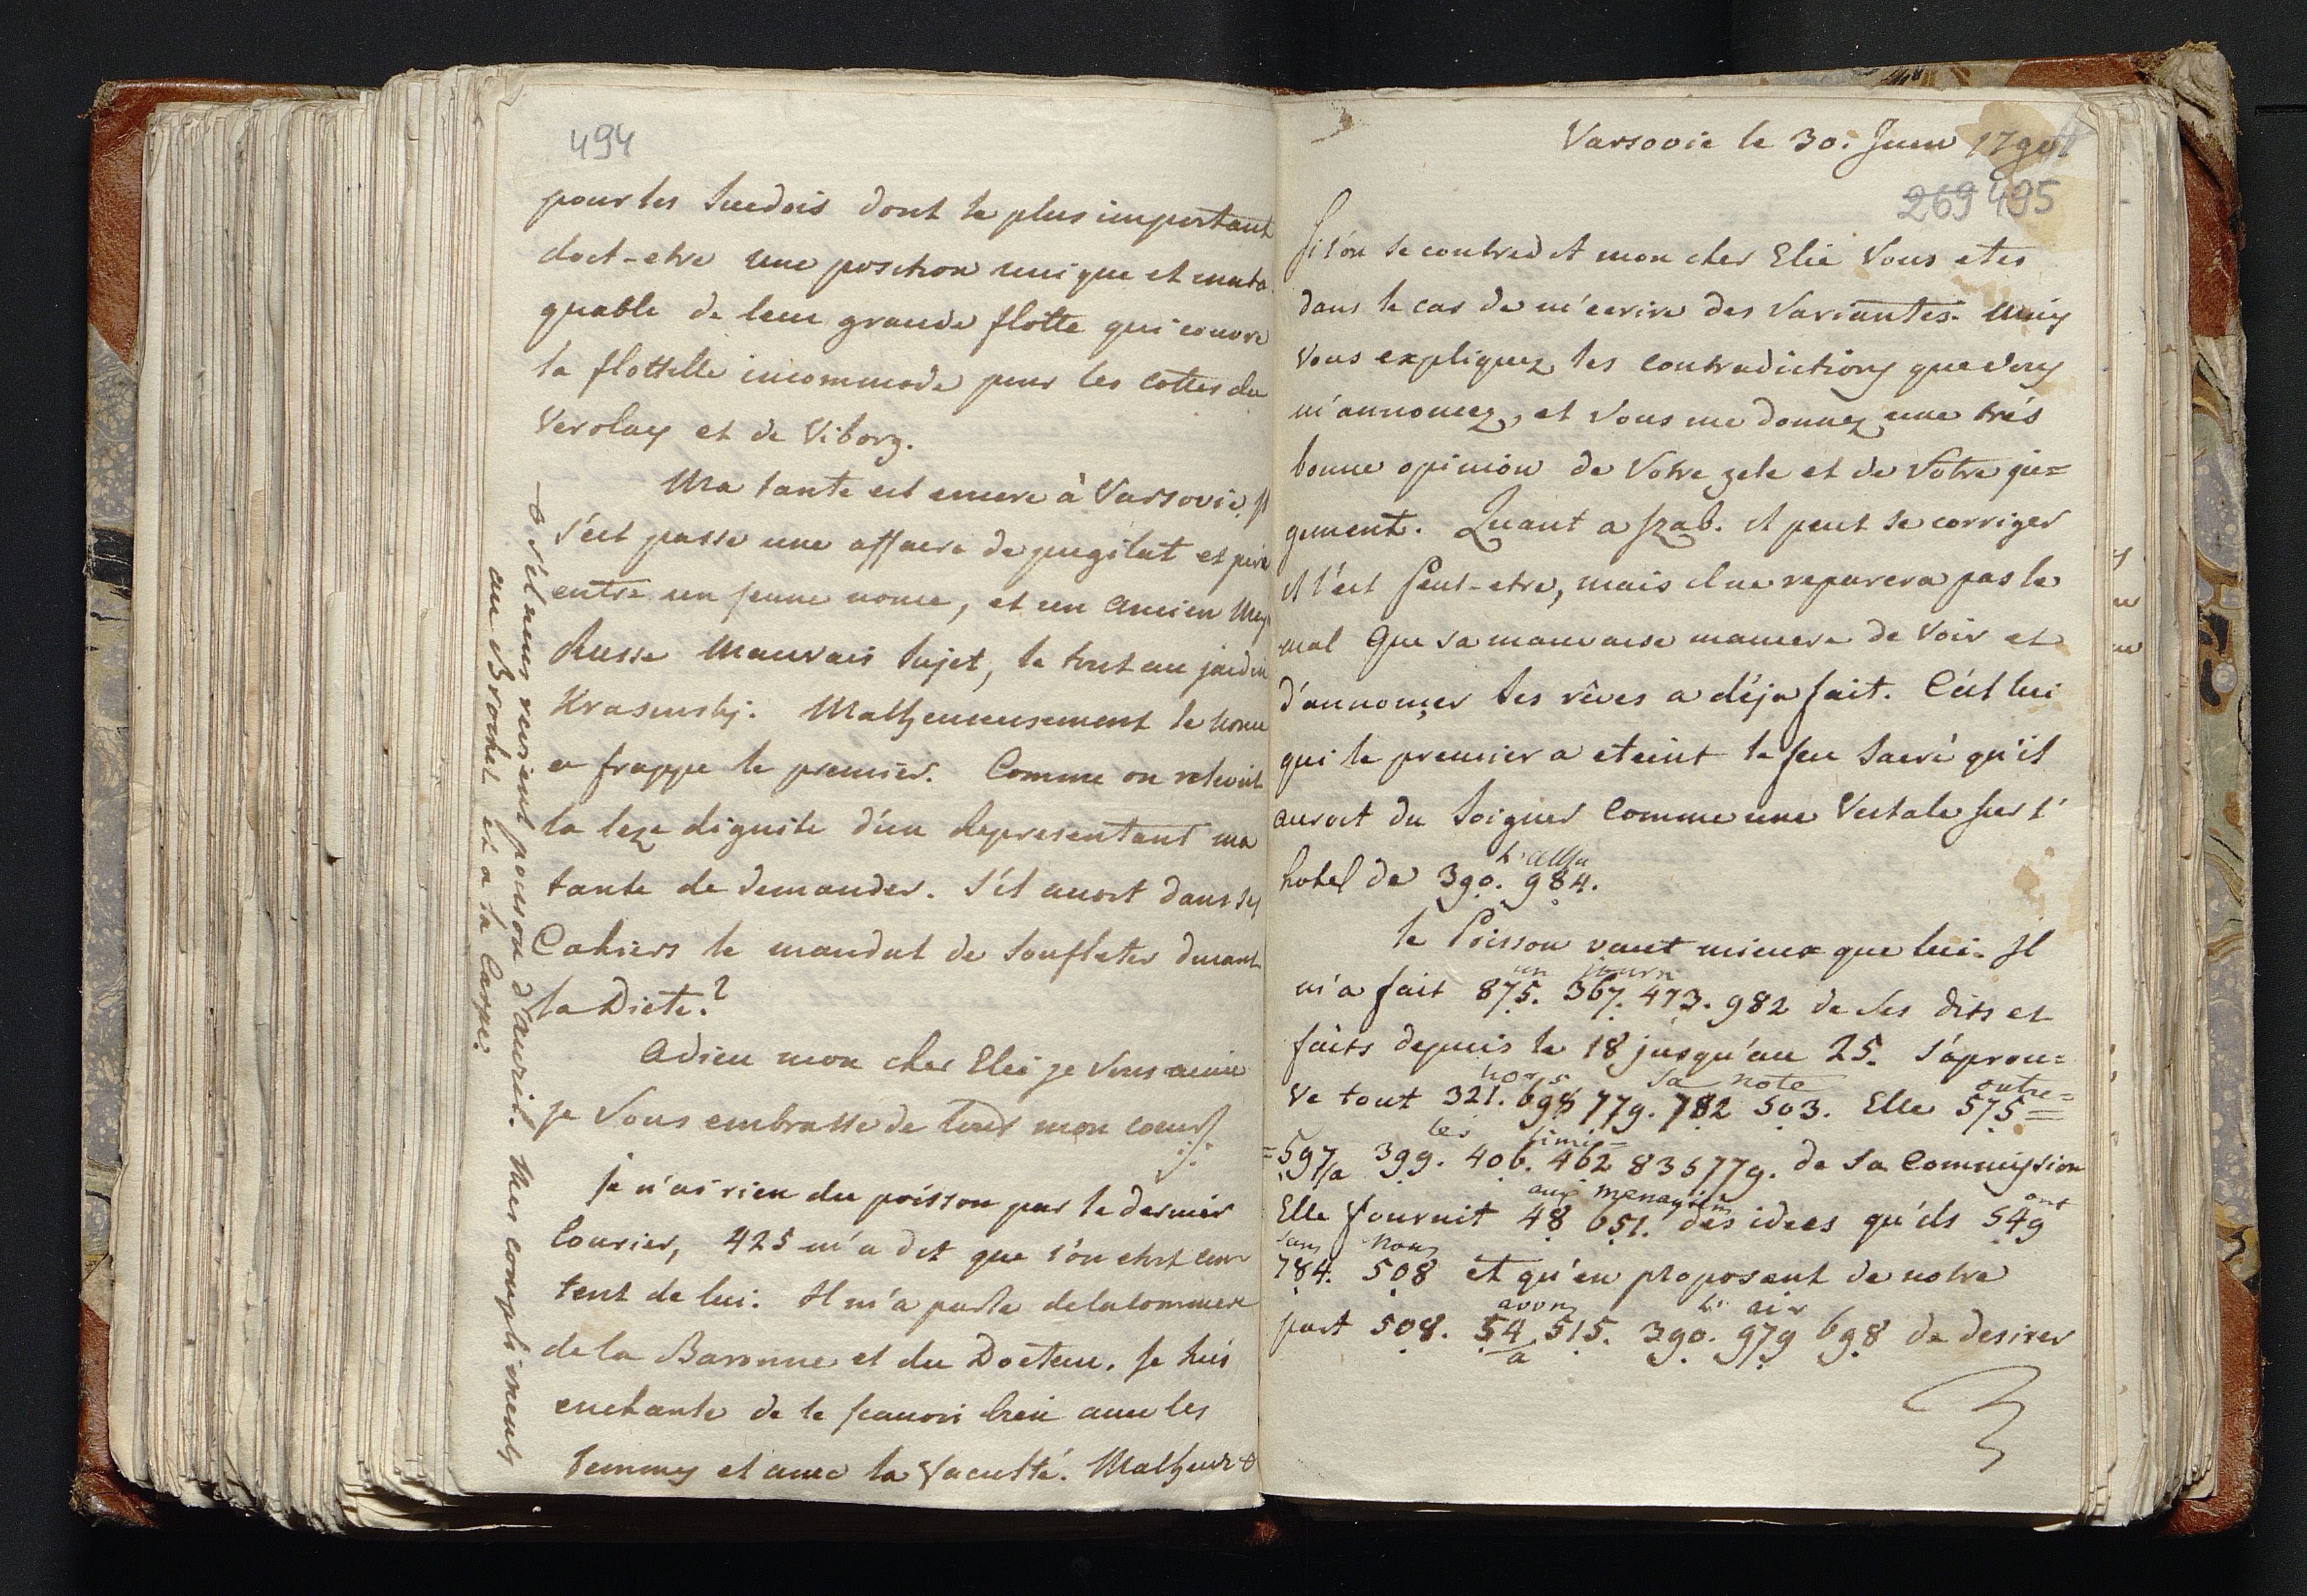 494
pour les Suedois dont le plus important
doit-etre une position unique et inata
quable de leur grande flotte qui couvre
la flottelle incommode pour les cottes de
et de Viborg.
Ma tante est encore à Varsovie. Il
s'est passe une affaire de pugilat et pire
entre un jeune nonce, et un ancien
Russe mauvais sujet, le tout au jardin
Krasinsky. Malheureusement le nonce
a frappe le premier. Comme on relevoit
la leze dignite d'un Representant ma
tante de demander. S'il avoit dans ses
Cahiers le mandat de soufleter durant
la Diete?
Adieu mon cher Elié je vous aime
je vous embrasse de tout mon coeur
je n'ai rien du poisson par le dernier
Courier, 425 m'a dit que l'on etoit con
tent de lui. Il m'a parle de la commere
de la Baronne et du Docteur. Je suis
enchante de le scavoir bien avec les
femmes et avec la faculté. Malheur a
O s'il nous revient poisson d'avril. Mes compliments
au Brochet et a la Carpe.
Varsovie le 30. Juin 1790
269 495
Si l'on se contredit mon cher Elie Vous etes
dans le cas de m'ecrire des variantes. Mais
vous expliquez les contradictions que vous
m'annoncez, et vous me donnez une trés
bonne opinion de votre zele et de votre ju=
gement. Quant a Szab. il peut se corriger
il l'est peut-etre, mais il ne reparera pas le
mal que sa mauvaise maniere de voir et
d'annonçer ses rêves a déja fait. C'est lui
qui le premier a eteint le feu sacré qu'il
auroit du soigner comme une Vestale sur l'
hotel de 390. 984.
le Poisson vaut mieux que lui. Il
un journ
m'a fait 875. 367. 473. 982 de ses dits et
faits depuis le 18 jusqu'au 25. J'aprou=
hors sa note outre=
ve tout 321. 698 779. 782 503. Elle 575=
les limi=
=597/a 399. 406. 462 835 779. de sa Commission
ont
Elle fournit 48 651. des idees qu'ils 549
sans nous
784. 508 et qu'en proposant de notre
avons l' air
part 508. 54/a 515. 390. 979 698 de desirer